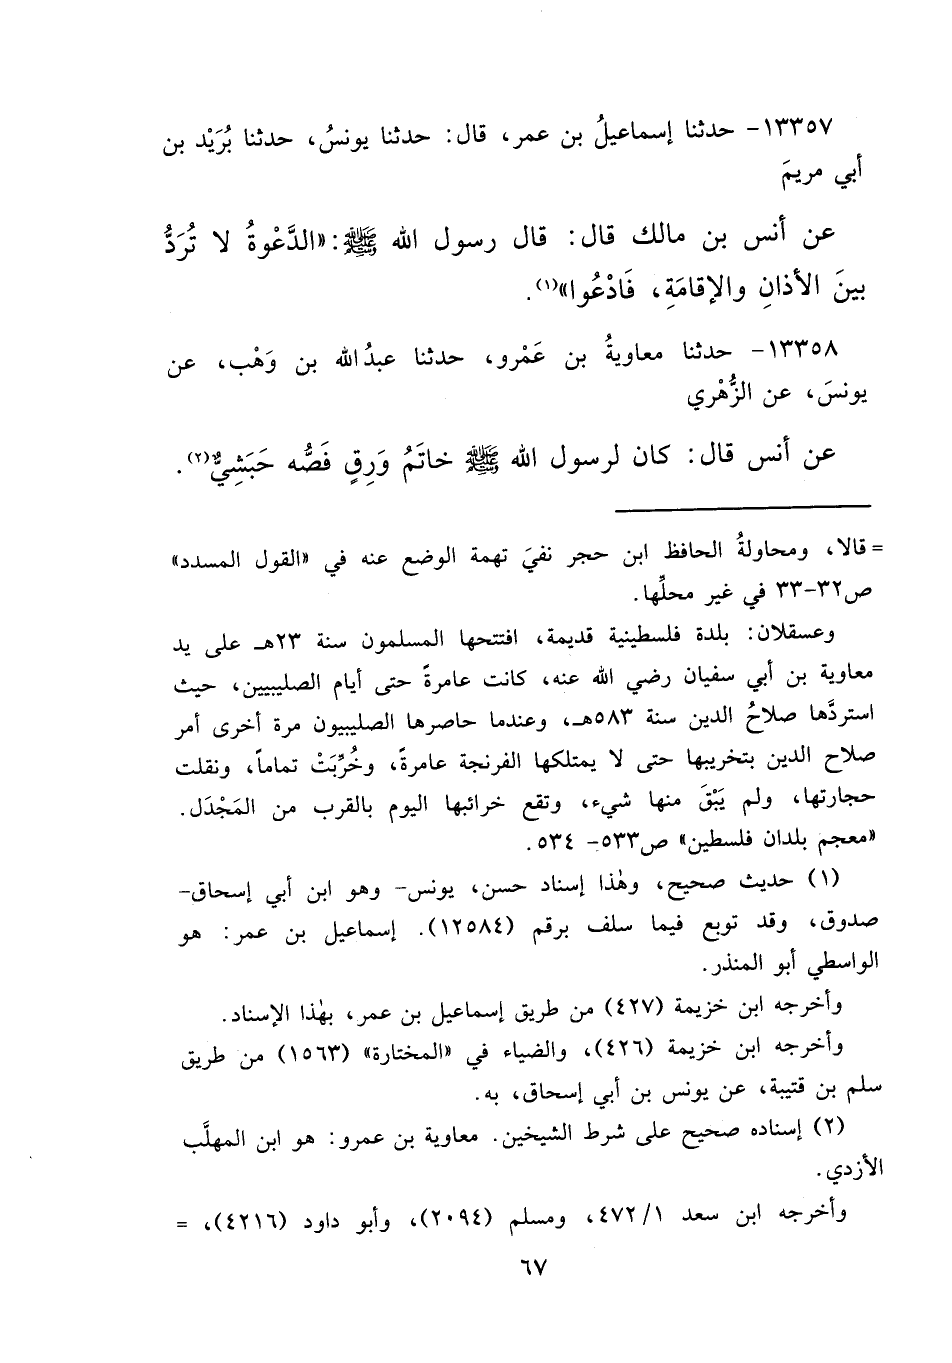 ١٣٣٥٧- حدثنا إسماعيلُ بن عمر، قال: حدثنا يونسُ، حدثنا بُرَيْد بن
أبي مريمَ
عن أنس بن مالك قال: قال رسول الله ﷺ: «الدَّعْوةُ لا تُرَدُّ
بينَ الأذانِ والإقامَةِ، فَادْعُوا»(١).
١٣٣٥٨- حدثنا معاويةُ بن عَمْرو، حدثنا عبدُ الله بن وَهْب، عن
يونسَ، عن الزُّهْري
عن أنس قال: كان لرسول الله ﷺ خاتَمُ وَرِقٍ فَصُّه حَبَشِيٌّ(٢).
= قالا، ومحاولةُ الحافظ ابن حجر نفيَ تهمة الوضع عنه في «القول المسدد»
ص٣٢-٣٣ في غير محلِّها.
وعسقلان: بلدة فلسطينية قديمة، افتتحها المسلمون سنة ٢٣هـ على يد
معاوية بن أبي سفيان رضي الله عنه، كانت عامرةً حتى أيام الصليبيين، حيث
استردَّها صلاحُ الدين سنة ٥٨٣هـ، وعندما حاصرها الصليبيون مرة أخرى أمر
صلاح الدين بتخريبها حتى لا يمتلكها الفرنجة عامرةً، وخُرِّبَتْ تماماً، ونقلت
حجارتها، ولم يَبْقَ منها شيء، وتقع خرائبها اليوم بالقرب من المَجْدَل.
«معجم بلدان فلسطين» ص٥٣٣- ٥٣٤.
(١) حديث صحيح، وهٰذا إسناد حسن، يونس- وهو ابن أبي إسحاق-
صدوق، وقد توبع فيما سلف برقم (١٢٥٨٤). إسماعيل بن عمر: هو
الواسطي أبو المنذر.
وأخرجه ابن خزيمة (٤٢٧) من طريق إسماعيل بن عمر، بهٰذا الإسناد.
وأخرجه ابن خزيمة (٤٢٦)، والضياء في «المختارة» (١٥٦٣) من طريق
سلم بن قتيبة، عن يونس بن أبي إسحاق، به.
(٢) إسناده صحيح على شرط الشيخين. معاوية بن عمرو: هو ابن المهلَّب
الأزدي.
وأخرجه ابن سعد ٤٧٢/١، ومسلم (٢٠٩٤)، وأبو داود (٤٢١٦)، =
٦٧